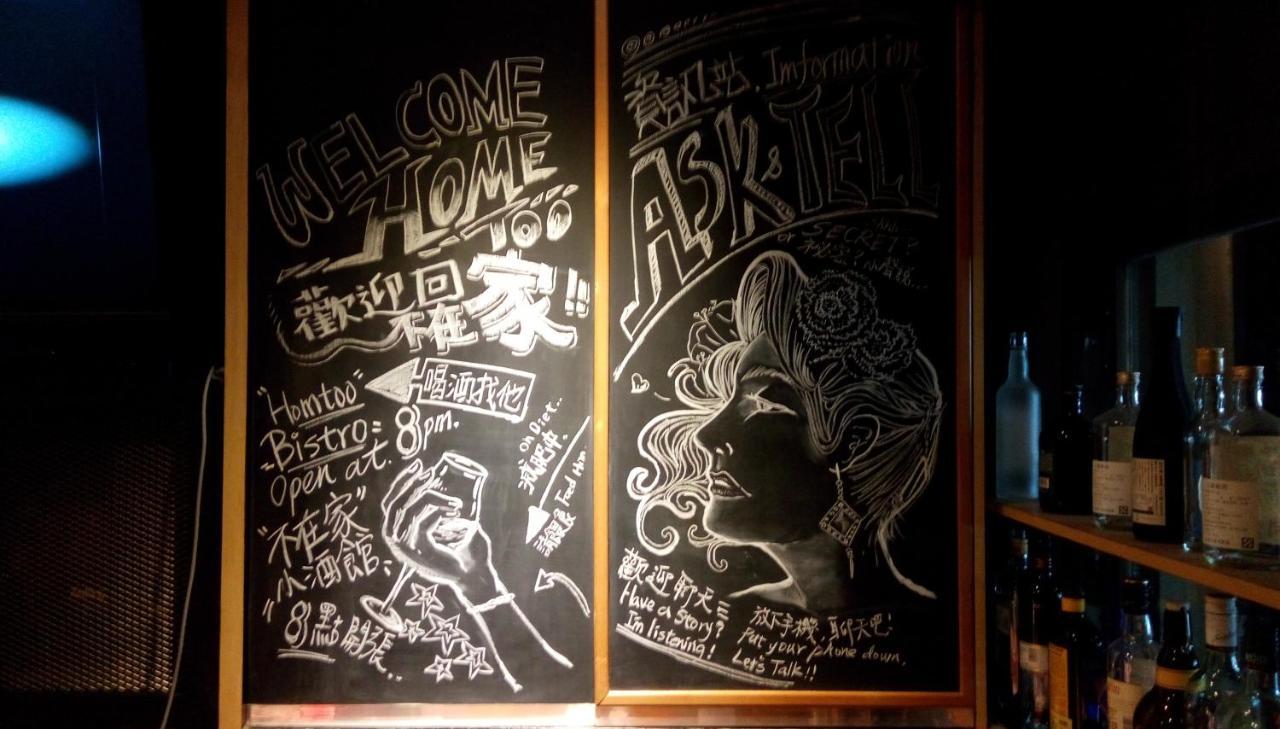 WELCOME
HOME
TOO
歡迎回家!!
不在
喝酒找他
"Homtoo"
Bistro
Open at 8pm.
on Diet..
減肥中
請餵食 Feed Him
"不在家"
小酒館
8點開張...
資訊站. Imformation
ASK & TELL
or SECRET?
秘密?
歡迎聊天
Have a story?
I'm listening!
放下手機, 聊天吧!
Put your phone down.
Let's Talk!!